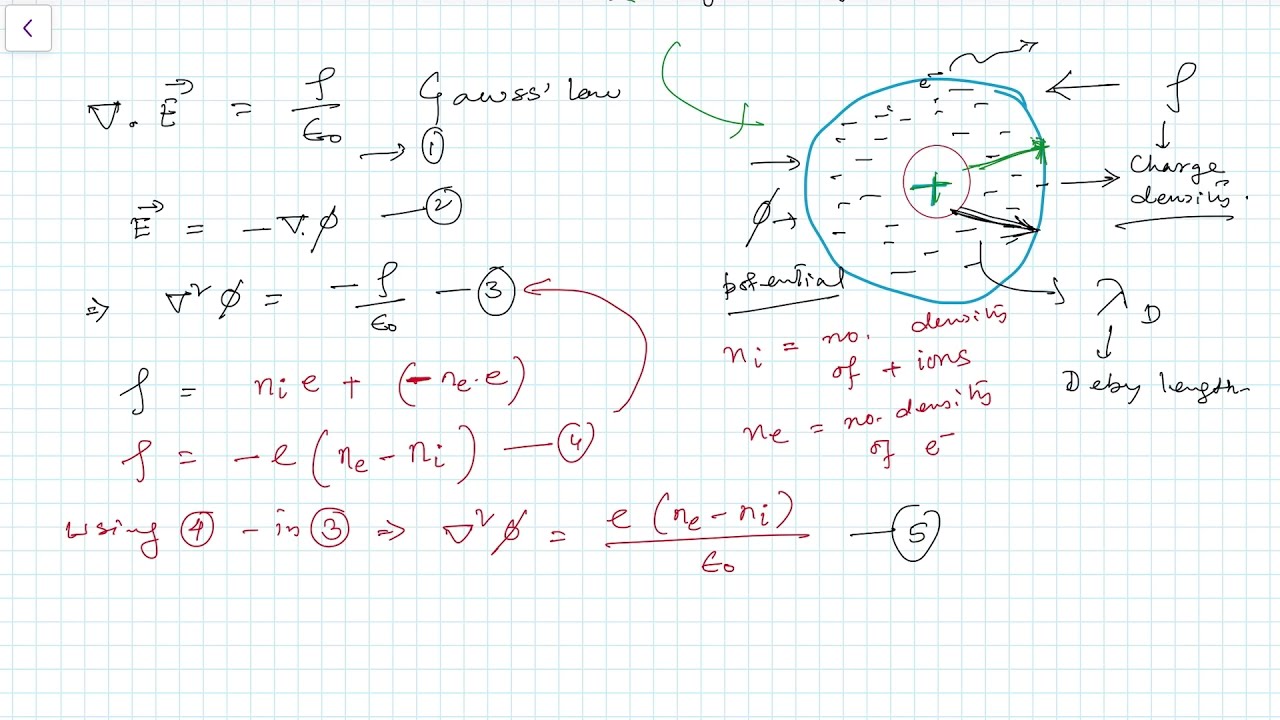 ∇. E⃗ = ρ/ε₀ Gauss' law
→ ①
E⃗ = -∇.φ — ②
⇒ ∇²φ = -ρ/ε₀ — ③
ρ = nᵢ e + (-nₑ.e)
ρ = -e (nₑ - nᵢ) — ④
using ④ - in ③ ⇒ ∇²φ = e (nₑ - nᵢ)/ε₀ — ⑤
e⁻
+
ρ
↓
Charge
density.
φ →
potential
λ_D
↓
Deby length
nᵢ = no. density
of + ions
nₑ = no. density
of e⁻